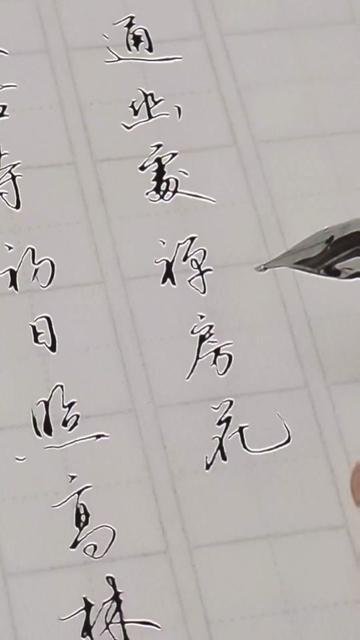 古寺初日照高林
通幽處禅房花